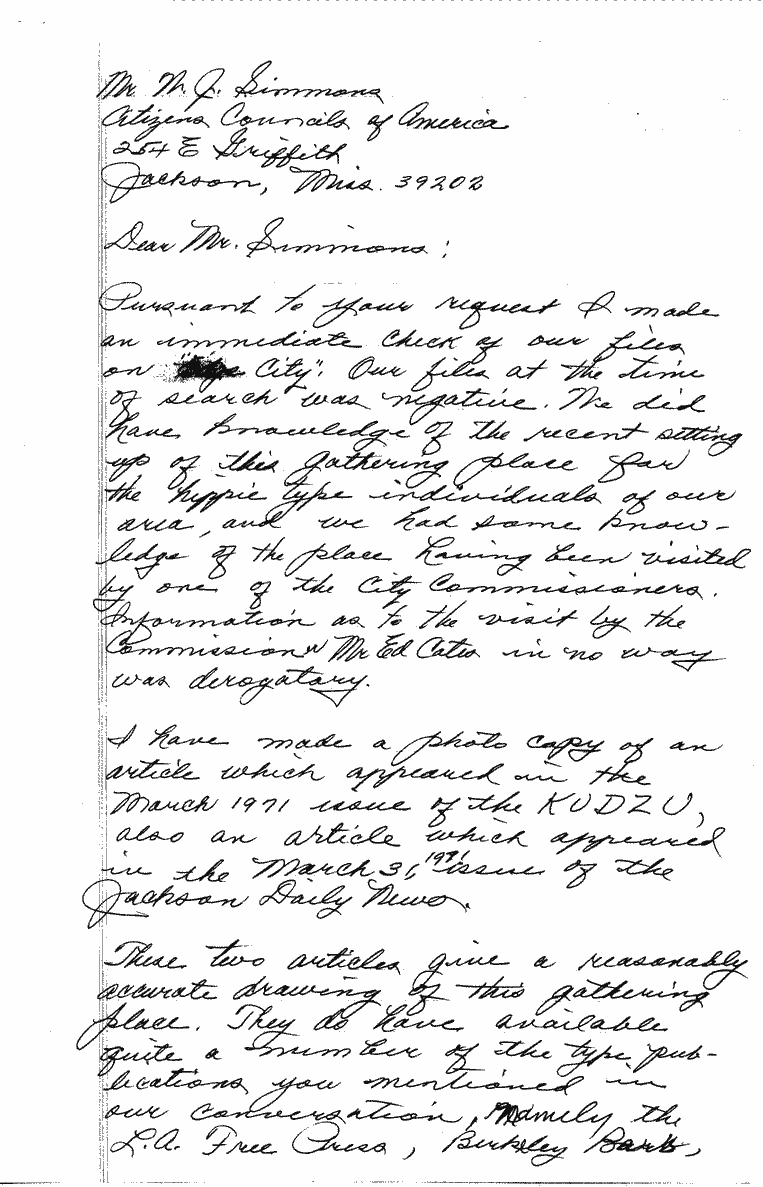 Mr. W. J. Simmons
Citizens Councils of America
254 E Griffith
Jackson, Miss. 39202
Dear Mr. Simmons:
Pursuant to your request I made
an immediate check of our files
on " City". Our files at the time
of search was negative. We did
have knowledge of the recent setting
up of this gathering place for
the hippie type individuals of our
area, and we had some know-
ledge of the place having been visited
by one of the City Commissioners.
Information as to the visit by the
Commissioner Mr Ed Cates in no way
was derogatory.
I have made a photo copy of an
article which appeared in the
March 1971 issue of the KUDZU,
also an article which appeared
in the March 31, 1971 issue of the
Jackson Daily News.
These two articles give a reasonably
accurate drawing of this gathering
place. They do have available
quite a number of the type pub-
lications you mentioned in
our conversation, Namely the
L.A. Free Press, Berkley Barb,